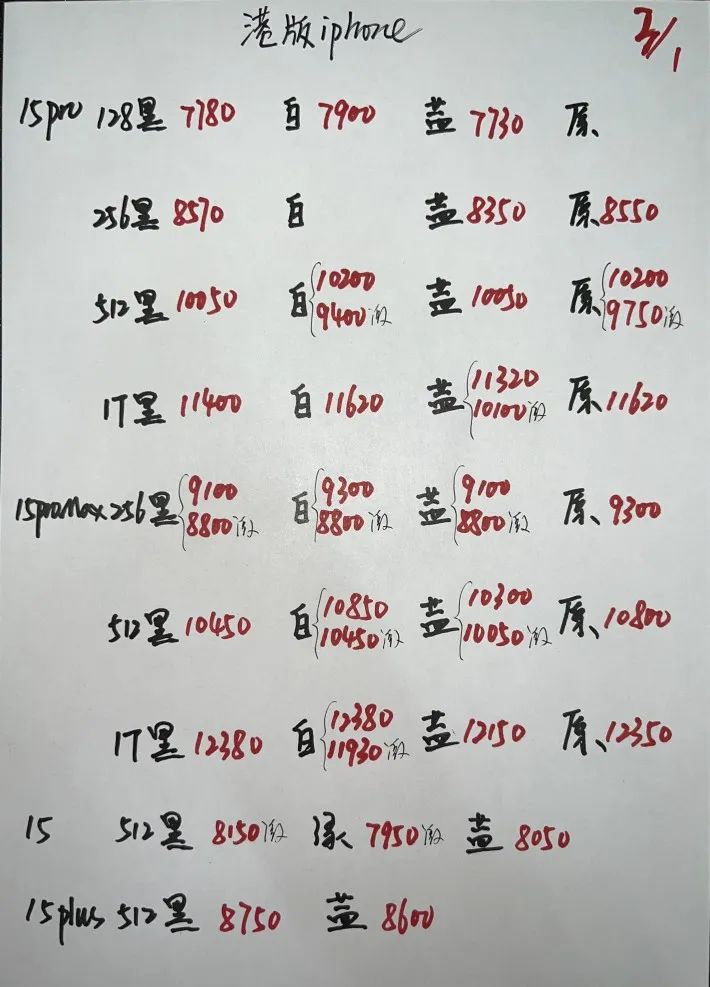 港版iphone 2/1
15pro 128黑 7780 白 7900 蓝 7730 原
256黑 8570 白 蓝 8350 原 8550
512黑 10050 白 10200 9400激 蓝 10050 原 10200 9750激
1T黑 11400 白 11620 蓝 11320 10100激 原 11620
15promax 256黑 9100 8800激 白 9300 8800激 蓝 9100 8800激 原 9300
512黑 10450 白 10850 10450激 蓝 10300 10050激 原 10800
1T黑 12380 白 12380 11930激 蓝 12150 原 12350
15 512黑 8150激 绿 7950激 蓝 8050
15plus 512黑 8750 蓝 8600